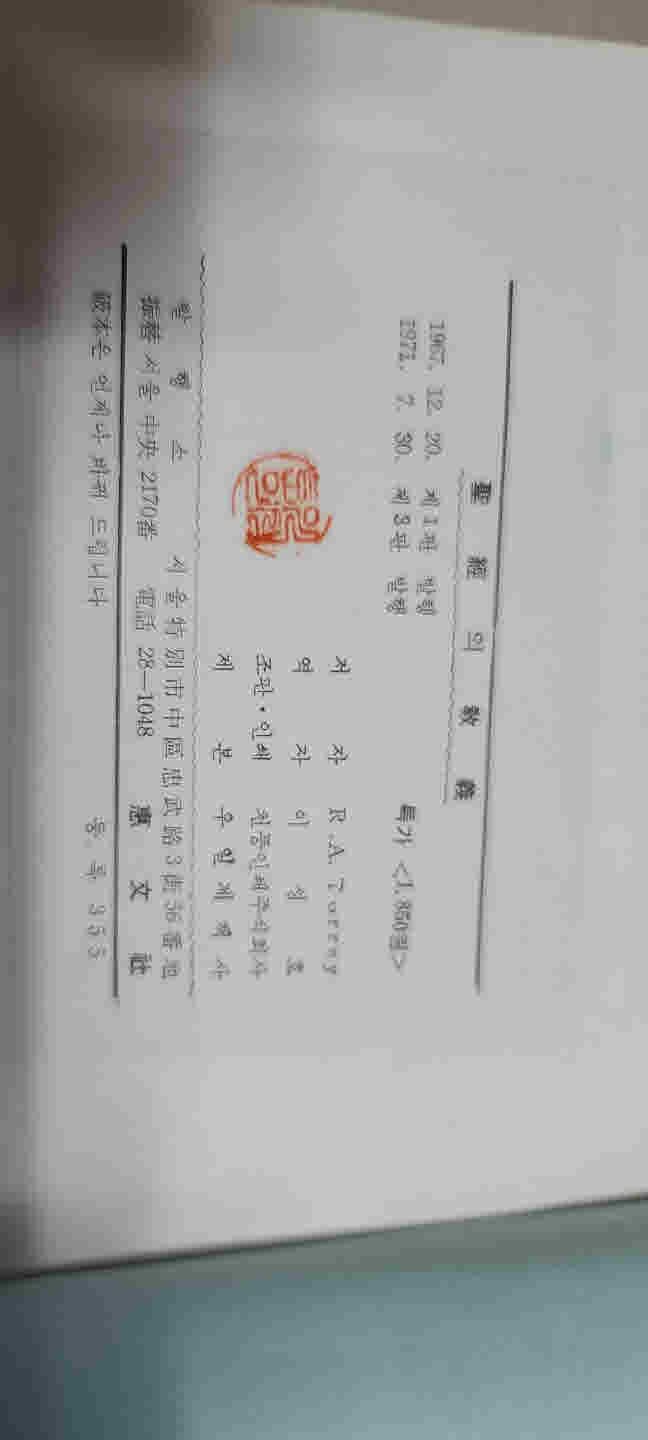 聖經의 敎義
1967. 12. 20. 제1판 발행
1971. 7. 30. 제3판 발행
특가 <1,850원>
저자 R.A.Torrey
역자 이성호
조판·인쇄
제본 우일제책사
발행소 서울特別市中區忠武路3街56番地
振替 서울 中央 2170番 電話 28—1048 惠文社
破本은 언제나 바꿔 드립니다
등록 353